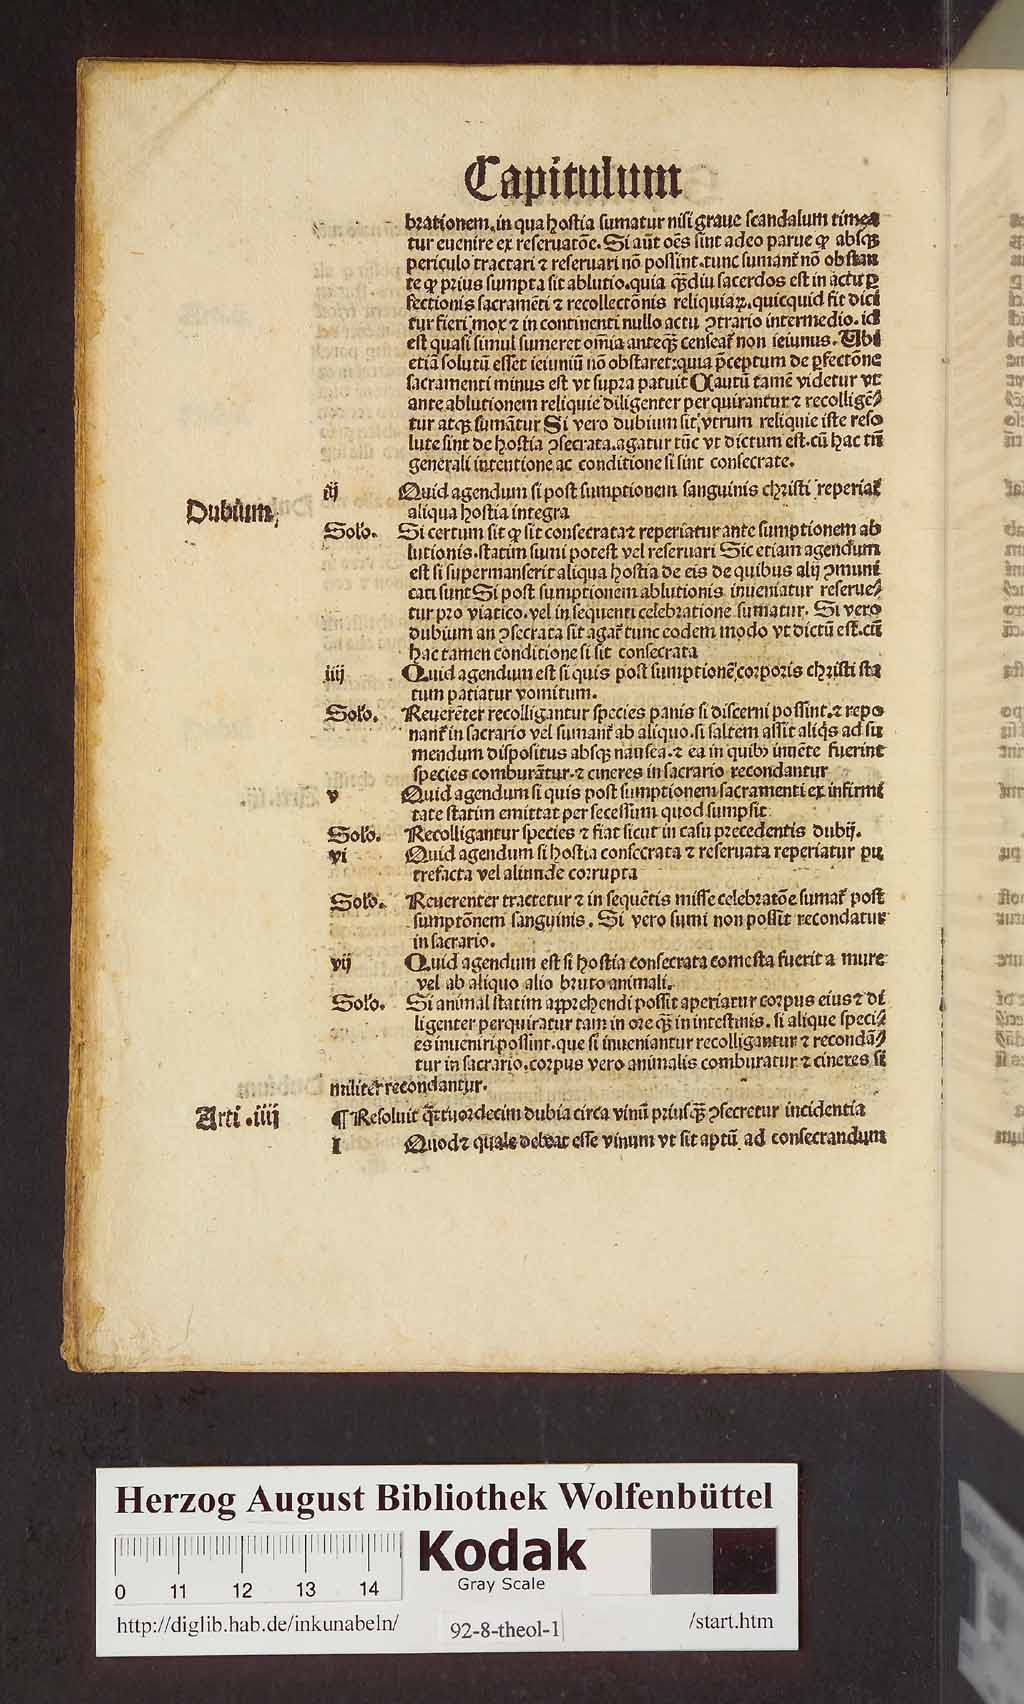 Capitulum
brationem. in qua hostia sumatur nisi graue scandalum timea
tur euenire ex reseruatōe. Si aūt oēs sint adeo parue ꝙ absqꝫ
periculo tractari ⁊ reseruari nō possint. tunc sumant̃ nō obstan
te ꝙ prius sumpta sit ablutio. quia qͣꝫdiu sacerdos est in actu ꝑ
fectionis sacramēti ⁊ recollectōnis reliquiaꝝ. quicquid fit dici
tur fieri mox ⁊ in continenti nullo actu ꝯtrario intermedio. id
est quasi simul sumeret om̄ia anteqͣꝫ censeat̃ non ieiunus. Ubi
etiā solutū esset ieiuniū nō obstaret: quia p̄ceptum de ꝑfectōne
sacramenti minus est vt supra patuit Cautū tamē videtur vt
ante ablutionem reliquie diligenter perquirantur ⁊ recolligē⸗
tur atqꝫ sumātur Si vero dubium sit vtrum reliquie iste reso
lute sint de hostia ꝯsecrata. agatur tūc vt dictum est. cū hac tñ
generali intentione ac conditione si sint consecrate.
Dubium
iij Quid agendum si post sumptionem sanguinis christi reperiat̃
aliqua hostia integra
Solo. Si certum sit ꝙ sit consecrata ⁊ reperiatur ante sumptionem ab
lutionis. statim sumi potest vel reseruari Sic etiam agendum
est si supermanserit aliqua hostia de eis de quibus alij ꝯmuni
cati sunt Si post sumptionem ablutionis inueniatur reserue⸗
tur pro viatico. vel in sequenti celebratione sumatur. Si vero
dubium an ꝯsecrata sit agat̃ tunc eodem modo vt dictū est. cū
hac tamen conditione si sit consecrata
iiij Quid agendum est si quis post sumptionē corporis christi sta
tum patiatur vomitum.
Solo. Reuerēter recolligantur species panis si discerni possint. ⁊ repo
nant̃ in sacrario vel sumant̃ ab aliquo. si saltem assit aliqͥs ad su
mendum dispositus absqꝫ nausea. ⁊ ea in quibꝰ inuēte fuerint
species comburātur. ⁊ cineres in sacrario recondantur
v Quid agendum si quis post sumptionem sacramenti ex infirmi
tate statim emittat per secessum quod sumpsit
Solo. Recolligantur species ⁊ fiat sicut in casu precedentis dubij.
vi Quid agendum si hostia consecrata ⁊ reseruata reperiatur pu
trefacta vel aliunde corrupta
Solo. Reuerenter tractetur ⁊ in sequētis misse celebratōe sumat̃ post
sumptōnem sanguinis. Si vero sumi non possit recondatur
in sacrario.
vij Quid agendum est si hostia consecrata comesta fuerit a mure
vel ab aliquo alio bruto animali.
Solo. Si animal statim apprehendi possit aperiatur corpus eius ⁊ di
ligenter perquiratur tam in ore qͣꝫ in intestinis. si alique speci⸗
es inueniri possint. que si inueniantur recolligantur ⁊ recondā⸗
tur in sacrario. corpus vero animalis comburatur ⁊ cineres si
militer recondantur.
Arti .iiij ¶ Resoluit qͣttuordecim dubia circa vinū priusqͣꝫ ꝯsecretur incidentia
I Quod ⁊ quale debeat esse vinum vt sit aptū ad consecrandum
Herzog August Bibliothek Wolfenbüttel
Kodak
Gray Scale
0 11 12 13 14
http://diglib.hab.de/inkunabeln/ 92-8-theol-1 /start.htm